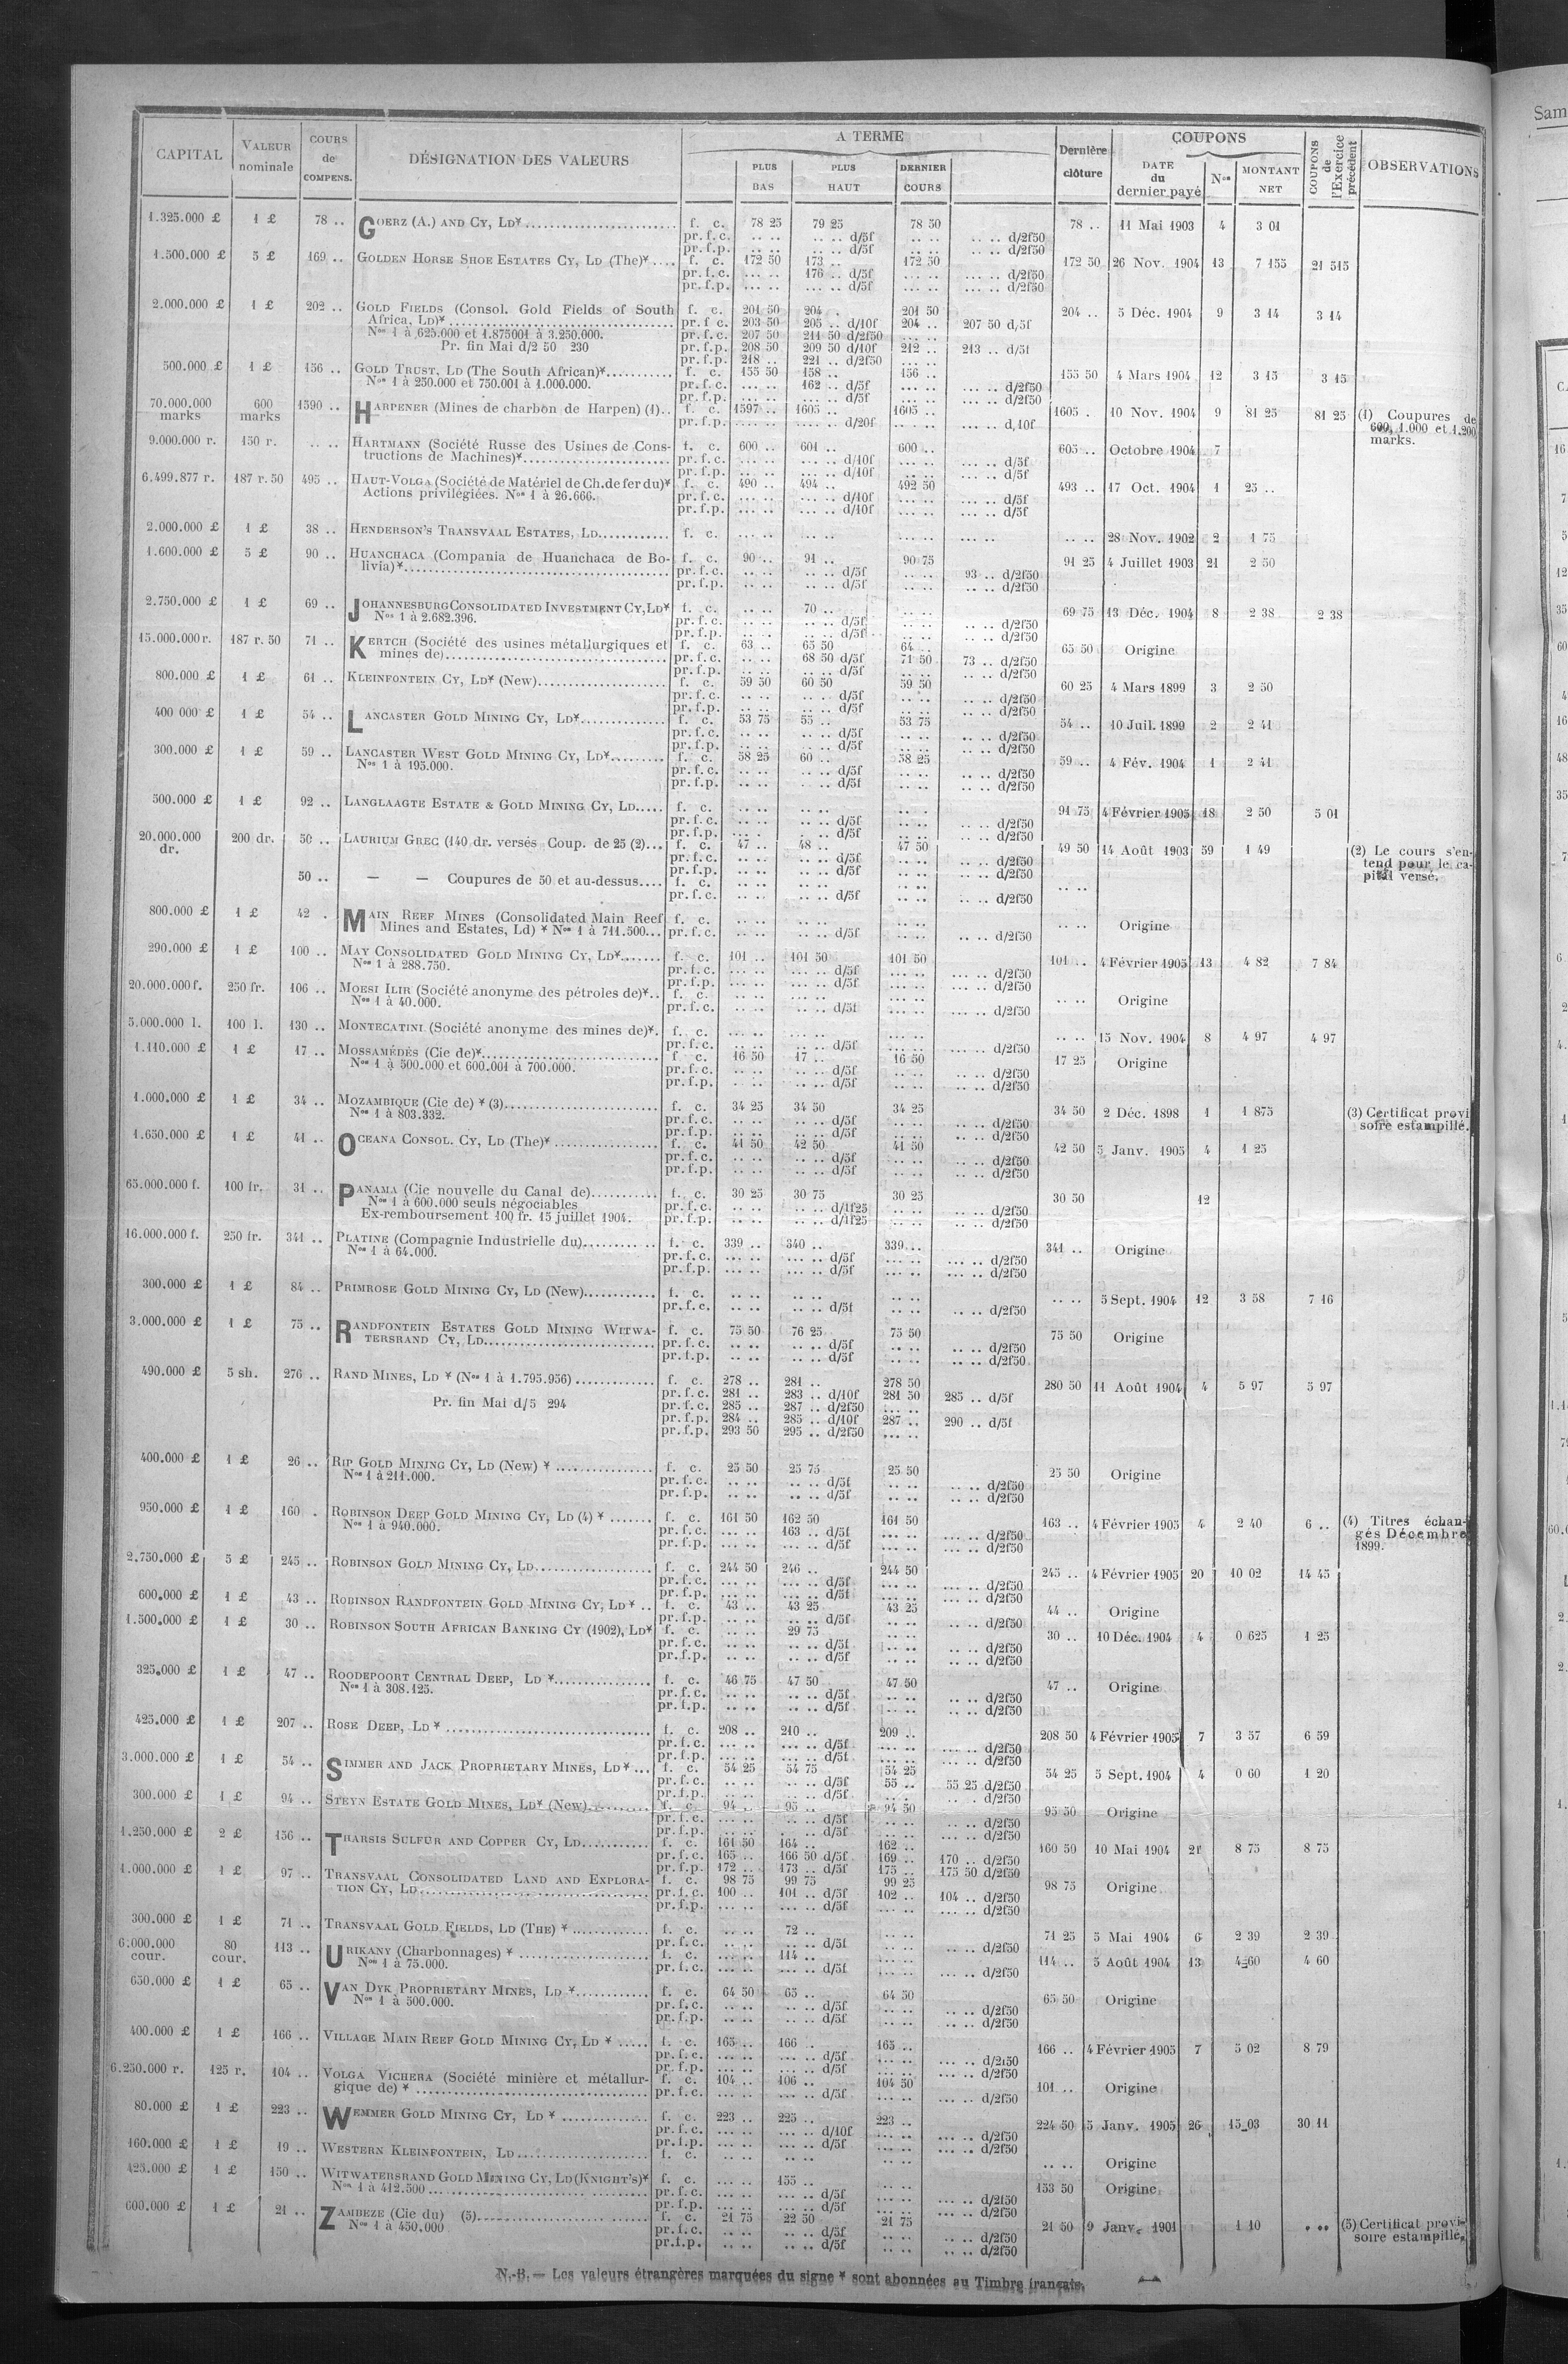 A TERME
COUPONS
CAPITAL | VALEUR nominale | COURS de COMPENS. | DÉSIGNATION DES VALEURS | PLUS BAS | PLUS HAUT | DERNIER COURS | Dernière clôture | DATE du dernier payé | Nos | MONTANT NET | COUPONS de l'Exercice précédent | OBSERVATIONS
1.325.000 £ 1 £ 78 .. GOERZ (A.) AND CY, LD* f. c. 78 25 79 25 78 50 78 .. 11 Mai 1903 4 3 01
pr. f. c. .. .. .. .. d/5f .. .. .. .. d/2f50
pr. f. p. .. .. .. .. d/5f .. .. .. .. d/2f50
1.500.000 £ 5 £ 169 .. GOLDEN HORSE SHOE ESTATES CY, LD (The)* f. c. 172 50 173 .. 172 50 172 50 26 Nov. 1904 13 7 155 21 515
pr. f. c. ... .. 176 .. d/5f ... .. ... .. d/2f50
pr. f. p. ... .. ... .. d/5f ... .. ... .. d/2f50
2.000.000 £ 1 £ 202 .. GOLD FIELDS (Consol. Gold Fields of South f. c. 201 50 204 . 201 50 204 .. 5 Déc. 1904 9 3 14 3 14
Africa, LD)* pr. f. c. 203 50 205 .. d/10f 204 .. 207 50 d/5f
Nos 1 à 625.000 et 1.875001 à 3.250.000. pr. f. c. 207 50 211 50 d/2f50 ... ..
Pr. fin Mai d/2 50 230 pr. f. p. 208 50 209 50 d/10f 212 .. 213 .. d/5f
pr. f. p. 218 .. 221 .. d/2f50 ... ..
500.000 £ 1 £ 156 .. GOLD TRUST, LD (The South African)* f. c. 155 50 158 .. 156 .. 155 50 4 Mars 1904 12 3 15 3 15
Nos 1 à 250.000 et 750.001 à 1.000.000. pr. f. c. ... .. 162 .. d/5f ... .. ... .. d/2f50
pr. f. p. ... .. ... .. d/5f ... .. ... .. d/2f50
70.000.000 marks 600 marks 1590 .. HARPENER (Mines de charbon de Harpen) (1).. f. c. 1597 .. 1605 . 1605 .. 1605 . 10 Nov. 1904 9 81 25 81 25 (1) Coupures de 600, 1.000 et 1.200 marks.
pr. f. p. .... .. .... .. d/20f .... .. .... .. d/10f
9.000.000 r. 150 r. .. .. HARTMANN (Société Russe des Usines de Cons- f. c. 600 .. 601 .. 600 .. 605 .. Octobre 1904 7
tructions de Machines)* pr. f. c. ... .. ... .. d/10f ... .. ... .. d/5f
pr. f. p. ... .. ... .. d/10f ... .. ... .. d/5f
6.499.877 r. 187 r. 50 495 .. HAUT-VOLGA (Société de Matériel de Ch. de fer du)* f. c. 490 .. 494 .. 492 50 493 .. 17 Oct. 1904 1 25 ..
Actions privilégiées. Nos 1 à 26.666. pr. f. c. ... .. ... .. d/10f ... .. ... .. d/5f
pr. f. p. ... .. ... .. d/10f ... .. ... .. d/5f
2.000.000 £ 1 £ 38 .. HENDERSON'S TRANSVAAL ESTATES, LD f. c. ... .. ... .. ... .. ... .. .. .. 28 Nov. 1902 2 1 75
1.600.000 £ 5 £ 90 .. HUANCHACA (Compania de Huanchaca de Bo- f. c. 90 .. 91 .. 90 75 91 25 4 Juillet 1903 21 2 50
livia)* pr. f. c. .. .. .. .. d/5f .. .. 93 .. d/2f50
pr. f. p. .. .. .. .. d/5f .. .. .. .. d/2f50
2.750.000 £ 1 £ 69 .. JOHANNESBURG CONSOLIDATED INVESTMENT CY, LD* f. c. .. .. 70 .. .. .. 69 75 13 Déc. 1904 8 2 38 2 38
Nos 1 à 2.682.396. pr. f. c. .. .. .. .. d/5f .. .. .. .. d/2f50
pr. f. p. .. .. .. .. d/5f .. .. .. .. d/2f50
15.000.000 r. 187 r. 50 71 .. KERTCH (Société des usines métallurgiques et f. c. 63 .. 65 50 64 .. 65 50 Origine
mines de) pr. f. c. .. .. 68 50 d/5f 71 50 73 .. d/2f50
pr. f. p. .. .. .. .. d/5f .. .. .. .. d/2f50
800.000 £ 1 £ 61 .. KLEINFONTEIN CY, LD* (New) f. c. 59 50 60 50 59 50 60 25 4 Mars 1899 3 2 50
pr. f. c. .. .. .. .. d/5f .. .. .. .. d/2f50
pr. f. p. .. .. .. .. d/5f .. .. .. .. d/2f50
400 000 £ 1 £ 54 .. LANCASTER GOLD MINING CY, LD* f. c. 53 75 55 .. 53 75 54 .. 10 Juil. 1899 2 2 41
pr. f. c. .. .. .. .. d/5f .. .. .. .. d/2f50
pr. f. p. .. .. .. .. d/5f .. .. .. .. d/2f50
300.000 £ 1 £ 59 .. LANCASTER WEST GOLD MINING CY, LD* f. c. 58 25 60 .. 58 25 59 .. 4 Fév. 1904 1 2 41
Nos 1 à 195.000. pr. f. c. .. .. .. .. d/5f .. .. .. .. d/2f50
pr. f. p. .. .. .. .. d/5f .. .. .. .. d/2f50
500.000 £ 1 £ 92 .. LANGLAAGTE ESTATE & GOLD MINING CY, LD f. c. .. .. .. .. .. .. 91 75 4 Février 1905 18 2 50 5 01
pr. f. c. .. .. .. .. d/5f .. .. .. .. d/2f50
pr. f. p. .. .. .. .. d/5f .. .. .. .. d/2f50
20.000.000 dr. 200 dr. 50 .. LAURIUM GREC (140 dr. versés Coup. de 25 (2) f. c. 47 .. 48 .. 47 50 49 50 14 Août 1903 59 1 49 (2) Le cours s'entend pour le capital versé.
pr. f. c. .. .. .. .. d/5f .. .. .. .. d/2f50
pr. f. p. .. .. .. .. d/5f .. .. .. .. d/2f50
50 .. — — Coupures de 50 et au-dessus f. c. .. .. .. .. .. .. .. ..
pr. f. c. .. .. .. .. d/5f .. .. .. .. d/2f50
800.000 £ 1 £ 42 . MAIN REEF MINES (Consolidated Main Reef f. c. .. .. .. .. .. .. .. .. Origine
Mines and Estates, Ld) * Nos 1 à 711.500 pr. f. c. .. .. .. .. d/5f .. .. .. .. d/2f50
290.000 £ 1 £ 100 .. MAY CONSOLIDATED GOLD MINING CY, LD* f. c. 101 .. 101 50 101 50 101 .. 4 Février 1905 13 4 82 7 84
Nos 1 à 288.750. pr. f. c. ... .. ... .. d/5f ... .. ... .. d/2f50
pr. f. p. ... .. ... .. d/5f ... .. ... .. d/2f50
20.000.000 f. 250 fr. 106 .. MOESI ILIR (Société anonyme des pétroles de)* f. c. .. .. .. .. ... .. .. .. Origine
Nos 1 à 40.000. pr. f. c. .. .. .. .. d/5f ... .. .. .. d/2f50
5.000.000 l. 100 l. 130 .. MONTECATINI (Société anonyme des mines de)* f. c. ... .. ... .. ... .. .. .. 15 Nov. 1904 8 4 97 4 97
pr. f. c. ... .. ... .. d/5f ... .. ... .. d/2f50
1.110.000 £ 1 £ 17 .. MOSSAMÉDÈS (Cie de)* f. c. 16 50 17 .. 16 50 17 25 Origine
Nos 1 à 500.000 et 600.001 à 700.000. pr. f. c. .. .. .. .. d/5f .. .. .. .. d/2f50
pr. f. p. .. .. .. .. d/5f .. .. .. .. d/2f50
1.000.000 £ 1 £ 34 .. MOZAMBIQUE (Cie de) * (3) f. c. 34 25 34 50 34 25 34 50 2 Déc. 1898 1 1 875 (3) Certificat provisoire estampillé.
Nos 1 à 803.332. pr. f. c. .. .. .. .. d/5f .. .. .. .. d/2f50
pr. f. p. .. .. .. .. d/5f .. .. .. .. d/2f50
1.650.000 £ 1 £ 41 .. OCEANA CONSOL. CY, LD (The)* f. c. 41 50 42 50 41 50 42 50 5 Janv. 1905 4 1 25
pr. f. c. .. .. .. .. d/5f .. .. .. .. d/2f50
pr. f. p. .. .. .. .. d/5f .. .. .. .. d/2f50
65.000.000 f. 100 fr. 31 .. PANAMA (Cie nouvelle du Canal de) f. c. 30 25 30 75 30 25 30 50 12
Nos 1 à 600.000 seuls négociables pr. f. c. .. .. .. .. d/1f25 .. .. .. .. d/2f50
Ex-remboursement 100 fr. 15 juillet 1904. pr. f. p. .. .. .. .. d/1f25 .. .. .. .. d/2f50
16.000.000 f. 250 fr. 341 .. PLATINE (Compagnie Industrielle du) f. c. 339 .. 340 .. 339 .. 341 .. Origine
Nos 1 à 64.000. pr. f. c. ... .. ... .. d/5f ... .. ... .. d/2f50
pr. f. p. ... .. ... .. d/5f ... .. ... .. d/2f50
300.000 £ 1 £ 84 .. PRIMROSE GOLD MINING CY, LD (New) f. c. .. .. .. .. .. .. .. .. 5 Sept. 1904 12 3 58 7 16
pr. f. c. .. .. .. .. d/5f .. .. .. .. d/2f50
3.000.000 £ 1 £ 75 .. RANDFONTEIN ESTATES GOLD MINING WITWA- f. c. 75 50 76 25 75 50 75 50 Origine
TERSRAND CY, LD pr. f. c. .. .. .. .. d/5f .. .. .. .. d/2f50
pr. f. p. .. .. .. .. d/5f .. .. .. .. d/2f50
490.000 £ 5 sh. 276 .. RAND MINES, LD * (Nos 1 à 1.795.956) f. c. 278 .. 281 .. 278 50 280 50 11 Août 1904 4 5 97 5 97
pr. f. c. 281 .. 283 .. d/10f 281 50 285 .. d/5f
Pr. fin Mai d/5 294 pr. f. c. 285 .. 287 .. d/2f50 ... ..
pr. f. p. 284 .. 285 .. d/10f 287 .. 290 .. d/5f
pr. f. p. 293 50 295 .. d/2f50 ... ..
400.000 £ 1 £ 26 .. RIP GOLD MINING CY, LD (New) * f. c. 25 50 25 75 25 50 25 50 Origine
Nos 1 à 211.000. pr. f. c. .. .. .. .. d/5f .. .. .. .. d/2f50
pr. f. p. .. .. .. .. d/5f .. .. .. .. d/2f50
950.000 £ 1 £ 160 . ROBINSON DEEP GOLD MINING CY, LD (4) * f. c. 161 50 162 50 161 50 163 .. 4 Février 1905 4 2 40 6 .. (4) Titres échangés Décembre 1899.
Nos 1 à 940.000. pr. f. c. ... .. 163 .. d/5f ... .. ... .. d/2f50
pr. f. p. ... .. ... .. d/5f ... .. ... .. d/2f50
2.750.000 £ 5 £ 245 .. ROBINSON GOLD MINING CY, LD f. c. 244 50 246 .. 244 50 245 .. 4 Février 1905 20 10 02 14 45
pr. f. c. ... .. ... .. d/5f ... .. ... .. d/2f50
pr. f. p. ... .. ... .. d/5f ... .. ... .. d/2f50
600.000 £ 1 £ 43 .. ROBINSON RANDFONTEIN GOLD MINING CY, LD * f. c. 43 .. 43 25 43 25 44 .. Origine
pr. f. p. .. .. .. .. d/5f .. .. .. .. d/2f50
1.500.000 £ 1 £ 30 .. ROBINSON SOUTH AFRICAN BANKING CY (1902), LD* f. c. .. .. 29 75 .. .. 30 .. 10 Déc. 1904 4 0 625 1 25
pr. f. c. .. .. .. .. d/5f .. .. .. .. d/2f50
pr. f. p. .. .. .. .. d/5f .. .. .. .. d/2f50
325.000 £ 1 £ 47 .. ROODEPOORT CENTRAL DEEP, LD * f. c. 46 75 47 50 47 50 47 .. Origine
Nos 1 à 308.125. pr. f. c. .. .. .. .. d/5f .. .. .. .. d/2f50
pr. f. p. .. .. .. .. d/5f .. .. .. .. d/2f50
425.000 £ 1 £ 207 .. ROSE DEEP, LD * f. c. 208 .. 210 .. 209 .. 208 50 4 Février 1905 7 3 57 6 59
pr. f. c. ... .. ... .. d/5f ... .. ... .. d/2f50
pr. f. p. ... .. ... .. d/5f ... .. ... .. d/2f50
3.000.000 £ 1 £ 54 .. SIMMER AND JACK PROPRIETARY MINES, LD* f. c. 54 25 54 75 54 25 54 25 5 Sept. 1904 4 0 60 1 20
pr. f. c. .. .. .. .. d/5f 55 .. 55 25 d/2f50
pr. f. p. .. .. .. .. d/5f .. .. .. .. d/2f50
300.000 £ 1 £ 94 .. STEYN ESTATE GOLD MINES, LD* (New) f. c. 94 .. 95 .. 94 50 95 50 Origine
pr. f. c. ... .. .. .. d/5f ... .. ... .. d/2f50
pr. f. p. ... .. .. .. d/5f ... .. ... .. d/2f50
1.250.000 £ 2 £ 156 .. THARSIS SULFUR AND COPPER CY, LD f. c. 161 50 164 .. 162 .. 160 50 10 Mai 1904 21 8 75 8 75
pr. f. c. 165 .. 166 50 d/5f 169 .. 170 .. d/2f50
pr. f. p. 172 .. 173 .. d/5f 175 .. 175 50 d/2f50
1.000.000 £ 1 £ 97 .. TRANSVAAL CONSOLIDATED LAND AND EXPLORA- f. c. 98 75 99 75 99 25 98 75 Origine
TION CY, LD pr. f. c. 100 .. 101 .. d/5f 102 .. 104 .. d/2f50
pr. f. p. ... .. ... .. d/5f ... .. ... .. d/2f50
300.000 £ 1 £ 71 .. TRANSVAAL GOLD FIELDS, LD (THE) * f. c. .. .. 72 .. .. .. 71 25 5 Mai 1904 6 2 39 2 39
pr. f. c. .. .. .. .. d/5f .. .. .. .. d/2f50
6.000.000 cour. 80 cour. 113 .. URIKANY (Charbonnages) * f. c. ... .. 114 .. ... .. 114 .. 5 Août 1904 13 4 60 4 60
Nos 1 à 75.000. pr. f. c. ... .. ... .. d/5f ... .. ... .. d/2f50
650.000 £ 1 £ 65 .. VAN DYK PROPRIETARY MINES, LD * f. c. 64 50 65 .. 64 50 65 50 Origine
Nos 1 à 500.000. pr. f. c. .. .. .. .. d/5f .. .. .. .. d/2f50
pr. f. p. .. .. .. .. d/5f .. .. .. .. d/2f50
400.000 £ 1 £ 166 .. VILLAGE MAIN REEF GOLD MINING CY, LD * f. c. 165 .. 166 .. 165 .. 166 .. 4 Février 1905 7 5 02 8 79
pr. f. c. ... .. ... .. d/5f ... .. ... .. d/2f50
pr. f. p. ... .. ... .. d/5f ... .. ... .. d/2f50
6.250.000 r. 125 r. 104 .. VOLGA VICHERA (Société minière et métallur- f. c. 104 .. 106 .. 104 50 101 .. Origine
gique de) * pr. f. c. ... .. ... .. d/5f ... .. ... .. d/2f50
80.000 £ 1 £ 223 .. WEMMER GOLD MINING CY, LD * f. c. 223 .. 225 .. 223 .. 224 50 5 Janv. 1905 26 15 03 30 11
pr. f. c. ... .. ... .. d/10f ... .. ... .. d/2f50
pr. f. p. ... .. ... .. d/5f ... .. ... .. d/2f50
160.000 £ 1 £ 19 .. WESTERN KLEINFONTEIN, LD f. c. .. .. .. .. .. .. .. .. Origine
425.000 £ 1 £ 150 .. WITWATERSRAND GOLD MINING CY, LD (KNIGHT'S)* f. c. ... .. 155 .. ... .. 153 50 Origine
Nos 1 à 412.500 pr. f. c. ... .. ... .. d/5f ... .. ... .. d/2f50
pr. f. p. ... .. ... .. d/5f ... .. ... .. d/2f50
600.000 £ 1 £ 21 .. ZAMBEZE (Cie du) (5) f. c. 21 75 22 50 21 75 21 50 9 Janv. 1901 1 10 ... (5) Certificat provisoire estampillé.
Nos 1 à 450.000 pr. f. c. .. .. .. .. d/5f .. .. .. .. d/2f50
pr. f. p. .. .. .. .. d/5f .. .. .. .. d/2f50
N.-B. — Les valeurs étrangères marquées du signe * sont abonnées au Timbre français.
Sam